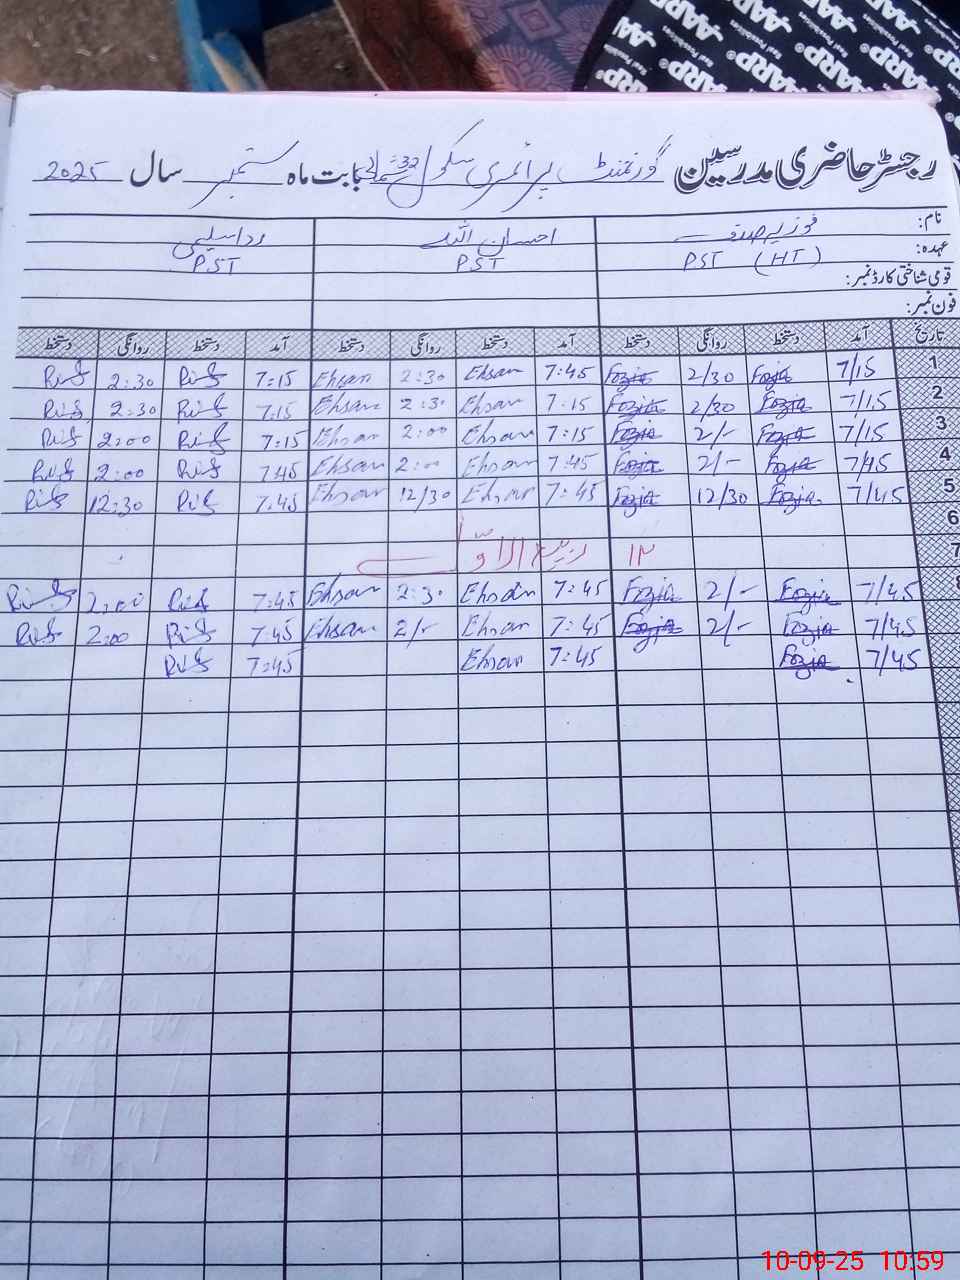 AARP Real Possibilities
رجسٹر حاضری مدرسین گورنمنٹ پرائمری سکول 32 شمالی بابت ماہ ستمبر سال 2025
نام: فوزیہ صدف احسان اللہ
عہدہ: PST (HT) PST PST
قومی شناختی کارڈ نمبر:
فون نمبر:
تاریخ آمد دستخط روانگی دستخط آمد دستخط روانگی دستخط آمد دستخط روانگی دستخط
1 7/15 Fozia 2/30 Fozia 7:45 Ehsan 2:30 Ehsan 7:15 2:30
2 7/15 Fozia 2/30 Fozia 7:15 Ehsan 2:30 Ehsan 7:15 2:30
3 7/15 Fozia 2/- Fozia 7:15 Ehsan 2:00 Ehsan 7:15 2:00
4 7/45 Fozia 2/- Fozia 7:45 Ehsan 2:00 Ehsan 7:45 2:00
5 7/45 Fozia 12/30 Fozia 7:45 Ehsan 12/30 Ehsan 7:45 12:30
6
7 ۱۲ ربیع الاوّل
8 7/45 Fozia 2/- Fozia 7:45 Ehsan 2:30 Ehsan 7:45 2:00
7/45 Fozia 2/- Fozia 7:45 Ehsan 2/- Ehsan 7:45 2:00
7/45 Fozia 7:45 Ehsan 7:45
10-09-25 10:59